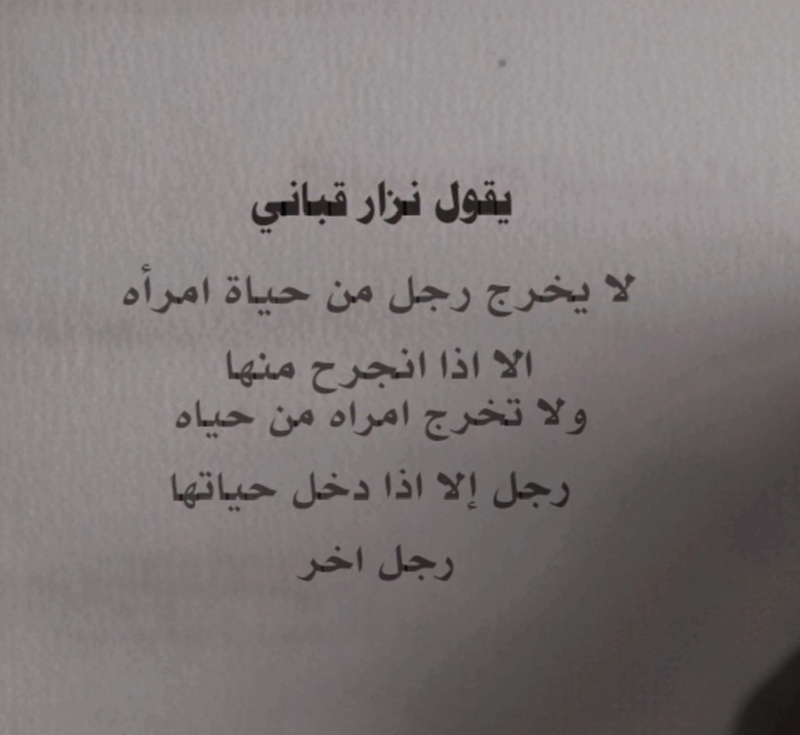 يقول نزار قباني
لا يخرج رجل من حياة امرأه
الا اذا انجرح منها
ولا تخرج امراه من حياه
رجل إلا اذا دخل حياتها
رجل اخر